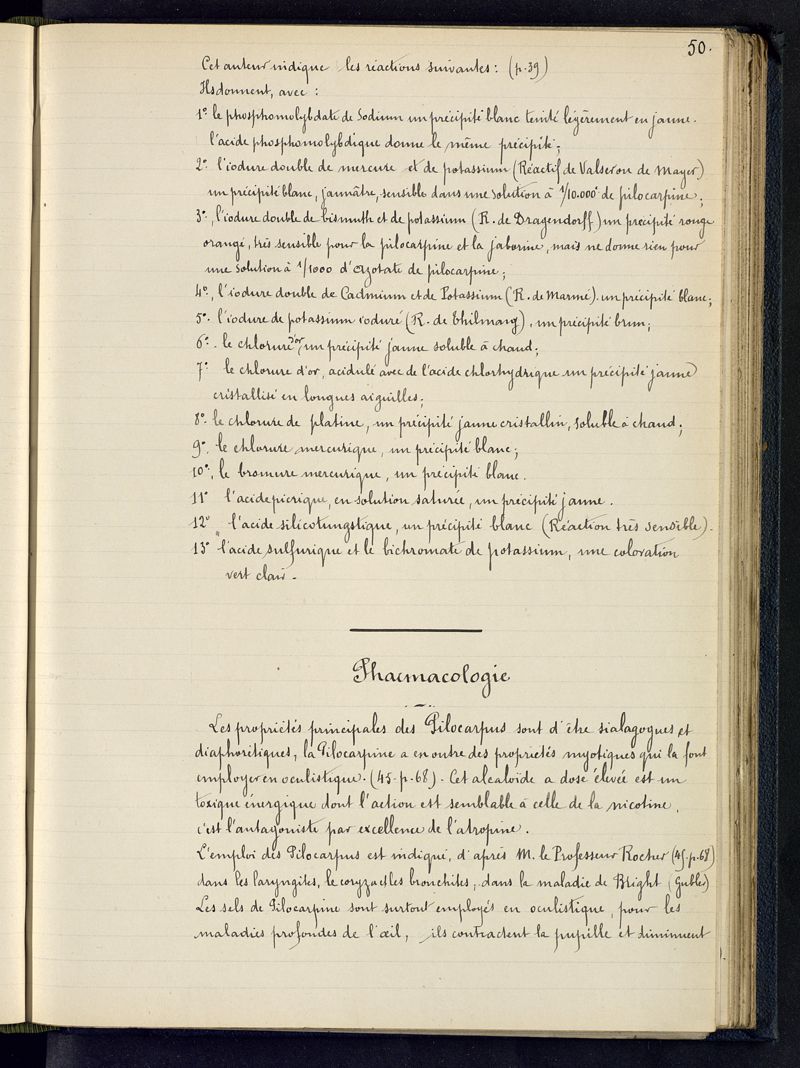 50.
Cet auteur indique les réactions suivantes : (p. 39)
Ils donnent, avec :
1º le phosphomolybdate de Sodium un précipité blanc teinté légèrement en jaune.
l'acide phosphomolybdique donne le même précipité ;
2º l'iodure double de mercure et de potassium (Réactif de Valseron de Mayer)
un précipité blanc, jaunâtre, sensible dans une solution à 1/10.000e de pilocarpine ;
3º, l'iodure double de bismuth et de potassium (R. de Dragendorff) un précipité rouge
orangé, très sensible pour la pilocarpine et la jaborine, mais ne donne rien pour
une solution à 1/1000 d'azotate de pilocarpine ;
4º, l'iodure double de Cadmium et de Potassium (R. de Marmé). un précipité blanc ;
5º. l'iodure de potassium ioduré (R. de Thilmany), un précipité brun ;
6º. le chlorure d'or, un précipité jaune soluble à chaud ;
7º le chlorure d'or, acidulé avec de l'acide chlorhydrique un précipité jaune
cristallisé en longues aiguilles ;
8º. le chlorure de platine, un précipité jaune cristallin, soluble à chaud ;
9º, le chlorure mercurique, un précipité blanc ;
10º, le bromure mercurique, un précipité blanc.
11º l'acide picrique, en solution saturée, un précipité jaune.
12º l'acide silicotungstique, un précipité blanc (Réaction très sensible).
13º l'acide sulfurique et le bichromate de potassium, une coloration
vert clair.
Pharmacologie
Les propriétés principales des Pilocarpus sont d'être sialagogues et
diaphoritiques, la Pilocarpine a en outre des propriétés myotiques qui la font
employer en oculistique. (45-p. 68). Cet alcaloïde a dose élevée est un
toxique énergique dont l'action est semblable à celle de la nicotine,
c'est l'antagoniste par excellence de l'atropine.
L'emploi des Pilocarpus est indiqué, d'après M. le Professeur Rocher (45 p. 68)
dans les laryngites, le coryza et les bronchites, dans la maladie de Bright (Gubler)
Les sels de Pilocarpine sont surtout employés en oculistique, pour les
maladies profondes de l'œil, ils contractent la pupille et diminuent